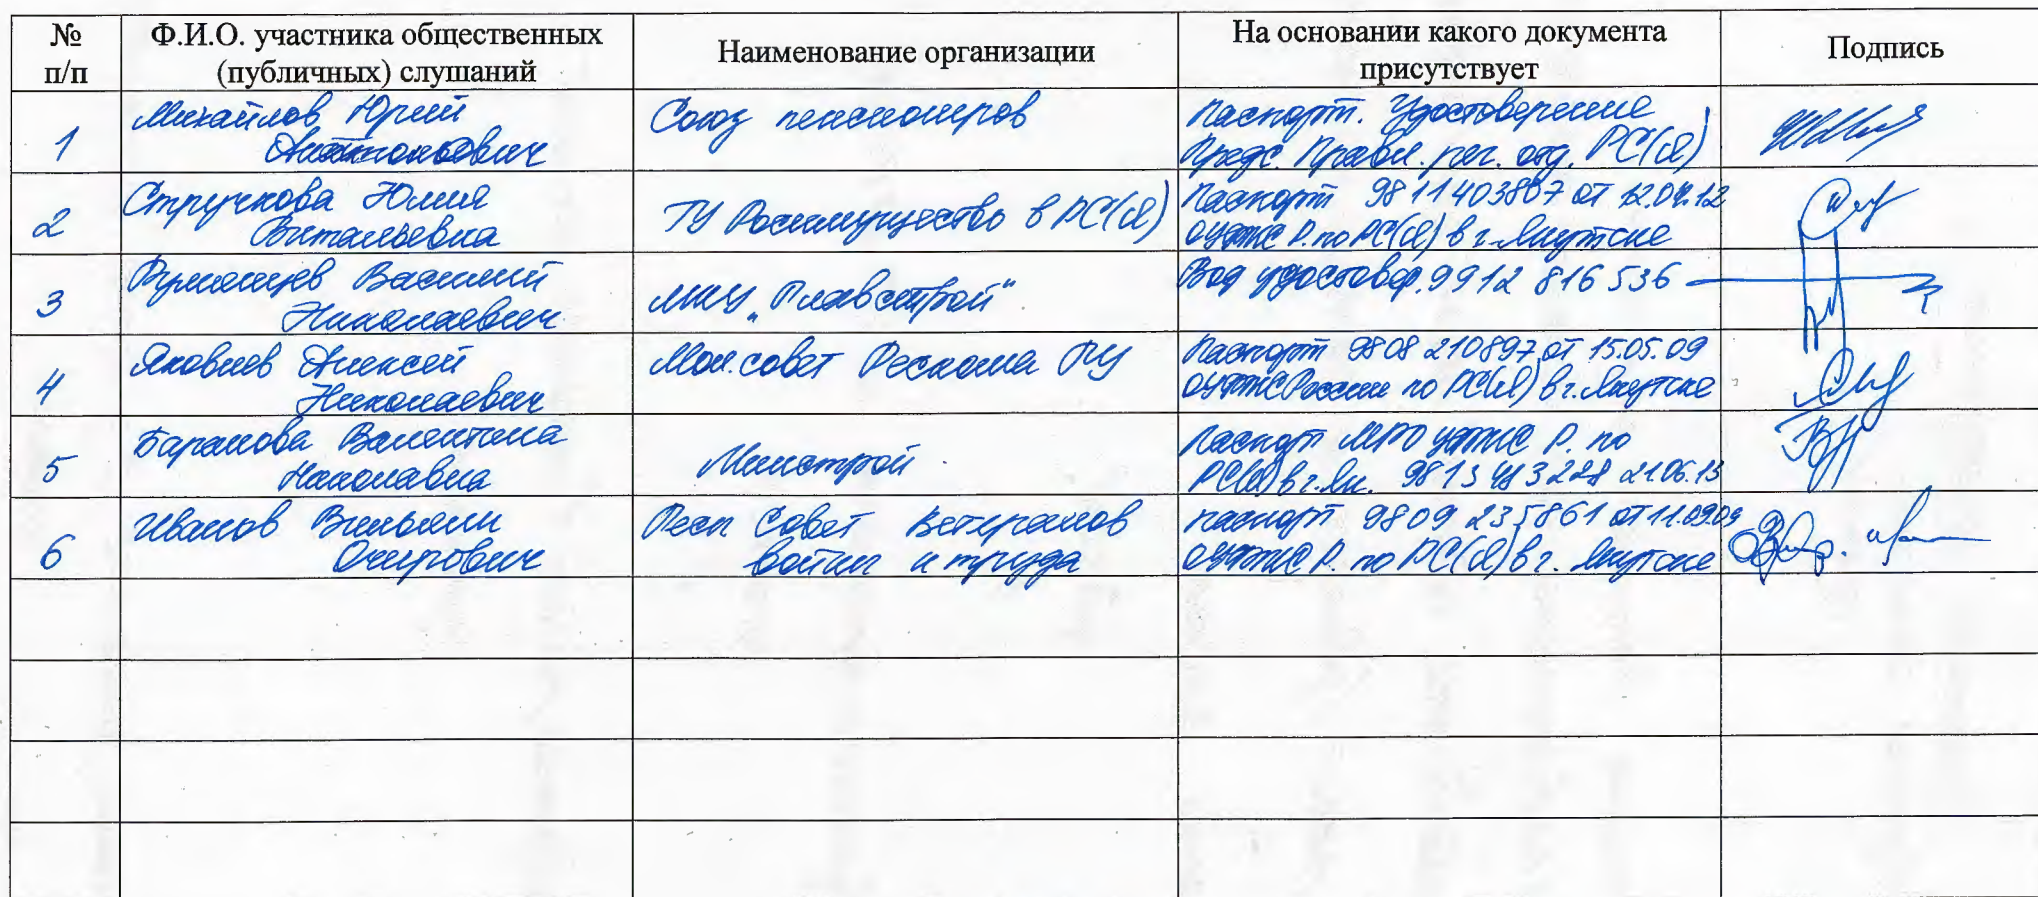 № п/п
Ф.И.О. участника общественных (публичных) слушаний
Наименование организации
На основании какого документа присутствует
Подпись
1
Михайлов Юрий
Анатольевич
Союз пенсионеров
Паспорт. Удостоверение
Предс. Правл. рег. отд. РС(Я)
2
Стручкова Юлия
Витальевна
ТУ Росимущество в РС(Я)
Паспорт 98 11 403807 от 12.04.12
ОУФМС Р. по РС(Я) в г. Якутске
3
Румянцев Василий
Николаевич
МКУ "Главстрой"
Вод удостовер. 9912 816 536
4
Яковлев Алексей
Николаевич
Мол. совет Рескома РУ
Паспорт 9808 210897 от 15.05.09
ОУФМС России по РС(Я) в г. Якутске
5
Баранова Валентина
Николавна
Минстрой
Паспорт МРО УФМС Р. по
РС(Я) в г. Як. 98 13 21.06.13
6
Иванов Вильям
Очирович
Респ Совет Ветеранов
войны и труда
паспорт 9809 235861 от 11.09.09
ОУФМС Р. по РС(Я) в г. Якутске